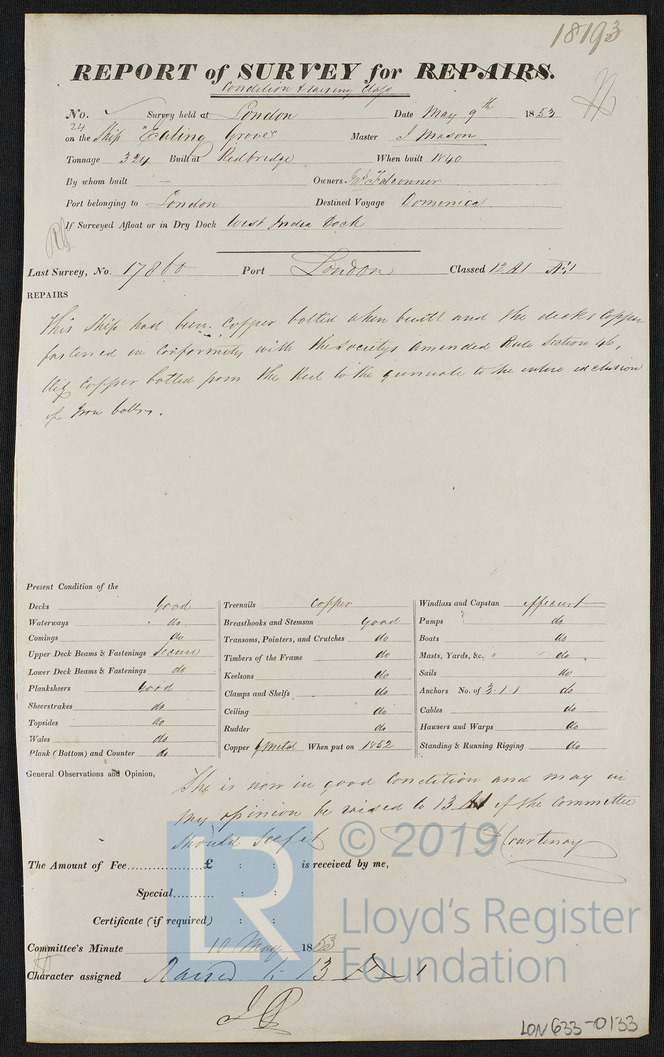 18193
REPORT of SURVEY for REPAIRS.
Condition & raising Class
No. Survey held at London Date May 9th 1853
24
on the Ship "Ealing Grove" Master J Mason
Tonnage 324 Built at Redbridge When built 1840
By whom built — Owners Falconner
Port belonging to London Destined Voyage Dominica
If Surveyed Afloat or in Dry Dock West India Dock
Last Survey, No. 17860 Port London Classed 12 A1
REPAIRS
This Ship had been copper bolted when built and the decks Copper
fastened in conformity with the Societys amended Rule Section 46,
copper bolted from the Keel to the gunwale to the entire exclusion
of Iron bolts.
Present Condition of the
Decks Good
Waterways do
Comings do
Upper Deck Beams & Fastenings Secure
Lower Deck Beams & Fastenings do
Planksheers Good
Sheerstrakes do
Topsides do
Wales do
Plank (Bottom) and Counter do
Treenails Copper
Breasthooks and Stemson good
Transoms, Pointers, and Crutches do
Timbers of the Frame do
Keelsons do
Clamps and Shelfs do
Ceiling do
Rudder do
Copper y Metal When put on 1852
Windlass and Capstan efficient
Pumps do
Boats do
Masts, Yards, &c. do
Sails do
Anchors No. of 3.1.1 do
Cables do
Hausers and Warps do
Standing & Running Rigging do
General Observations and Opinion,
She is now in good Condition and may in
my opinion be raised to 13 A1 if the Committee
should see fit Courtenay
The Amount of Fee............... £ : : is received by me,
Special.......... : :
Certificate (if required) : :
Committee's Minute 10 May 1853
Character assigned Raised to 13 A 1
© 2019
LR
Lloyd's Register
Foundation
LON633-0133